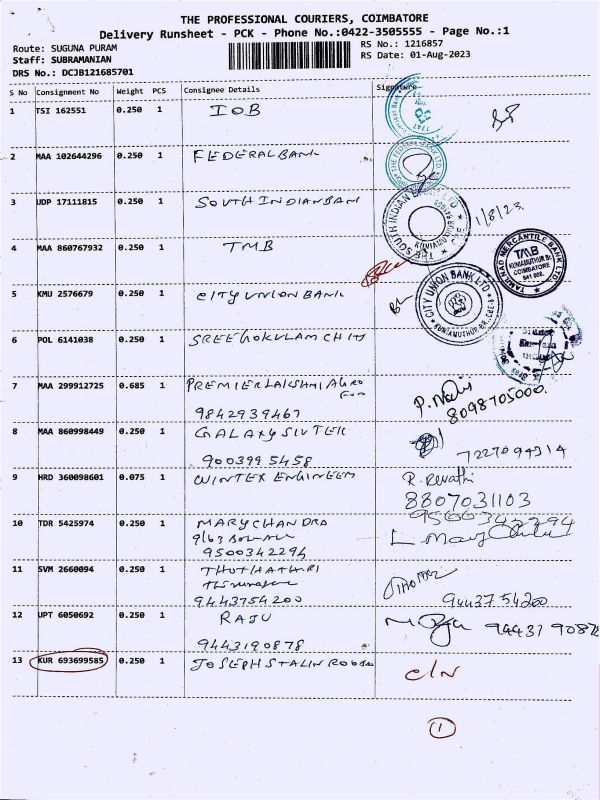 THE PROFESSIONAL COURIERS, COIMBATORE
Delivery Runsheet - PCK - Phone No.:0422-3505555 - Page No.:1
Route: SUGUNA PURAM
RS No.: 1216857
Staff: SUBRAMANIAN
RS Date: 01-Aug-2023
DRS No.: DCJB121685701
S No Consignment No Weight PCS Consignee Details Signature
1 TSI 162551 0.250 1 IOB
2 MAA 102644296 0.250 1 FEDERALBANK
3 UDP 17111815 0.250 1 SOUTHINDIANBAN
THE SOUTH INDIAN BANK LTD
KUNIAMUTHUR
1/8/23
4 MAA 860767932 0.250 1 TMB
TAMILNAD MERCANTILE BANK LTD
TMB
KUNIAMUTHUR Br.
COIMBATORE
641 008.
5 KMU 2576679 0.250 1 CITYUNIONBANK
CITY UNION BANK LTD
KUNIAMUTHUR BR. CBE-8
6 POL 6141038 0.250 1 SREEGOKULAMCHITS
7 MAA 299912725 0.685 1 PREMIERLAKSHMIAGRO
9842939467
P. 
8098705000.
8 MAA 860998449 0.250 1 GALAXYSIVTEK
9003995458
7227094314
9 HRD 360098601 0.075 1 WINTEX ENGINEERS
R. Revathi
8807031103
10 TDR 5425974 0.250 1 MARYCHANDRA
9500342294
9500342294
L Mary
11 SVM 2660094 0.250 1 THUTHATHRI
9443754200
9443754200
12 UPT 6050692 0.250 1 RAJU
9443190878
9443190878
13 KUR 693699585 0.250 1 JOSEPHSTALIN
C/N
1